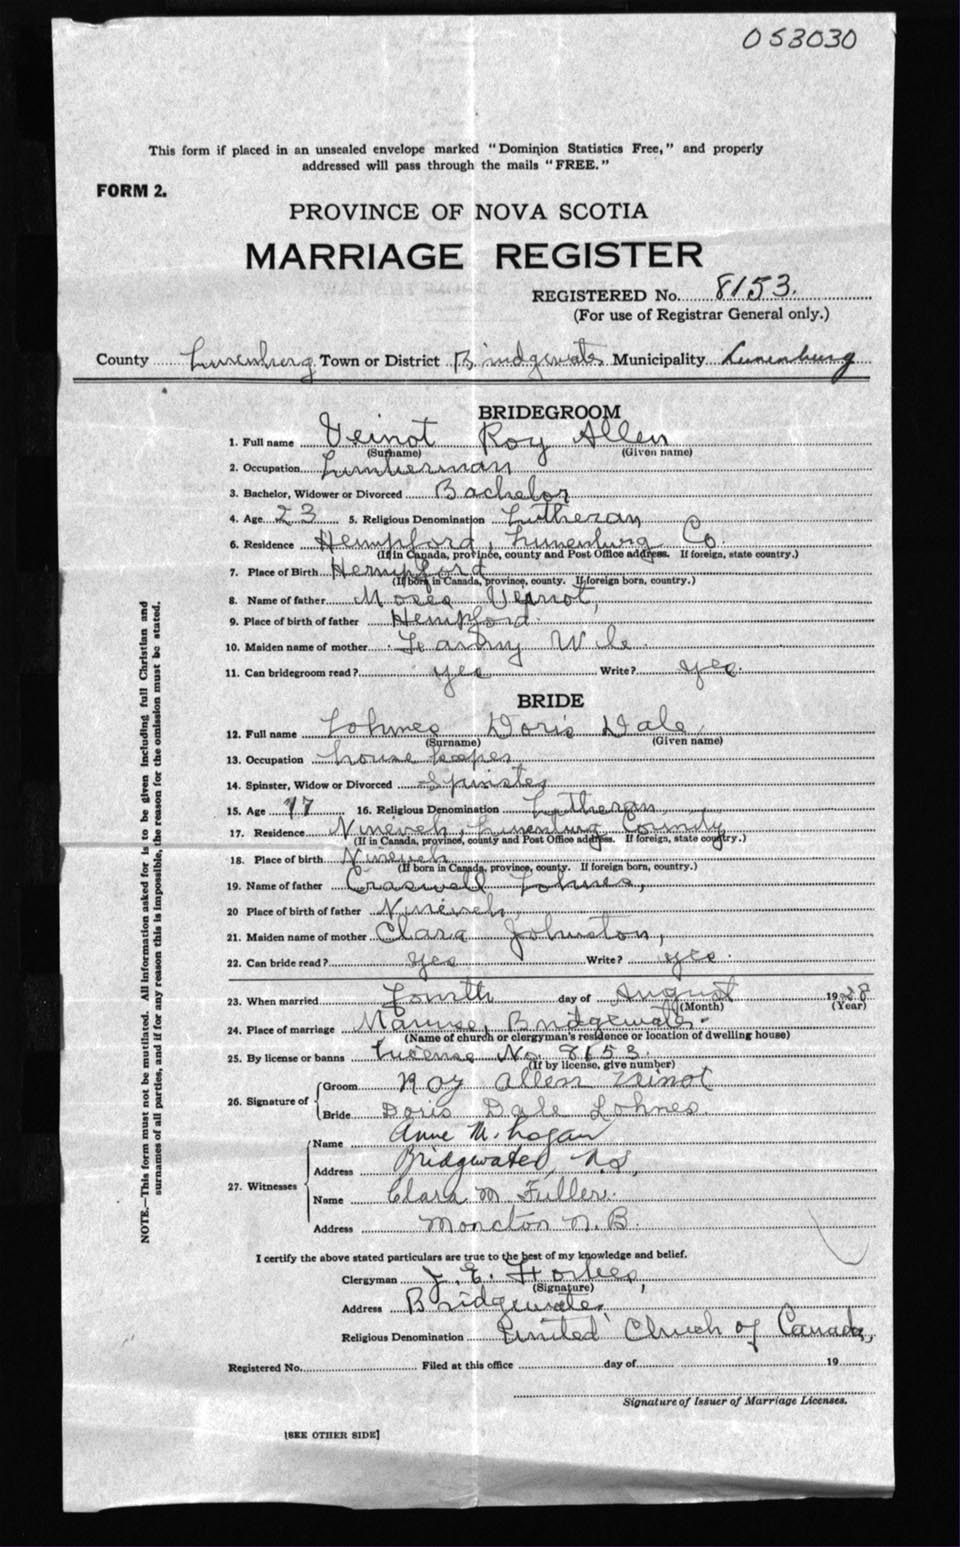 053030
This form if placed in an unsealed envelope marked "Dominion Statistics Free," and properly
addressed will pass through the mails "FREE."
FORM 2.
PROVINCE OF NOVA SCOTIA
MARRIAGE REGISTER
REGISTERED No. 8153.
(For use of Registrar General only.)
County Lunenburg Town or District Bridgewater Municipality Lunenburg
BRIDEGROOM
1. Full name Veinot Roy Allen
(Surname) (Given name)
2. Occupation Lumberman
3. Bachelor, Widower or Divorced Bachelor
4. Age 23 5. Religious Denomination Lutheran
6. Residence Hempford, Lunenburg Co.
(If in Canada, province, county and Post Office address. If foreign, state country.)
7. Place of Birth Hempford
(If born in Canada, province, county. If foreign born, country.)
8. Name of father Moses Veinot,
9. Place of birth of father Hempford.
10. Maiden name of mother Wile
11. Can bridegroom read? yes Write? yes.
BRIDE
12. Full name Lohnes Doris Dale
(Surname) (Given name)
13. Occupation housekeeper
14. Spinster, Widow or Divorced Spinster
15. Age 17 16. Religious Denomination Lutheran
17. Residence Nineveh, Lunenburg County
(If in Canada, province, county and Post Office address. If foreign, state country.)
18. Place of birth Nineveh
(If born in Canada, province, county. If foreign born, country.)
19. Name of father Lohnes,
20 Place of birth of father Nineveh,
21. Maiden name of mother Clara Johnston,
22. Can bride read? yes Write? yes.
23. When married Fourth day of August 1928
(Month) (Year)
24. Place of marriage Manse, Bridgewater.
(Name of church or clergyman's residence or location of dwelling house)
25. By license or banns License No. 8153.
(If by license, give number)
26. Signature of
Groom Roy Allen Veinot
Bride Doris Dale Lohnes
27. Witnesses
Name Anne M. Logan
Address Bridgwater, N.S,
Name Clara M Fuller.
Address Moncton N.B.
I certify the above stated particulars are true to the best of my knowledge and belief.
Clergyman J. E. Forbes,
(Signature)
Address Bridgewater.
Religious Denomination United Church of Canada,
Registered No. Filed at this office day of 19
Signature of Issuer of Marriage Licenses.
[SEE OTHER SIDE]
NOTE.—This form must not be mutilated. All information asked for is to be given including full Christian and
surnames of all parties, and if for any reason this is impossible, the reason for the omission must be stated.